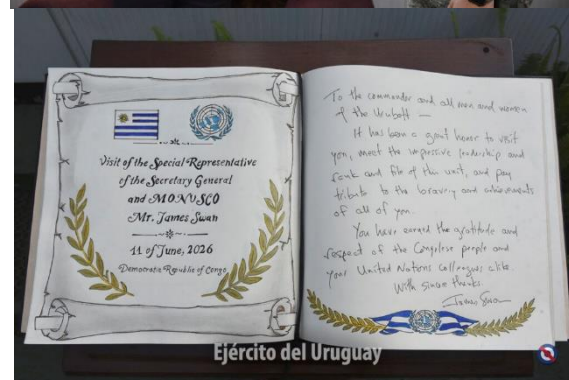 Visit of the Special Representative
of the Secretary General
and MONUSCO
Mr. James Swan
11 of June, 2026
Democratic Republic of Congo
To the commander and all men and women
of the Urubatt —
It has been a great honor to visit
you, meet the impressive leadership and
rank and file of this unit, and pay
tribute to the bravery and achievements
of all of you.
You have earned the gratitude and
respect of the Congolese people and
your United Nations colleagues alike.
With sincere thanks.
James Swan
Ejército del Uruguay